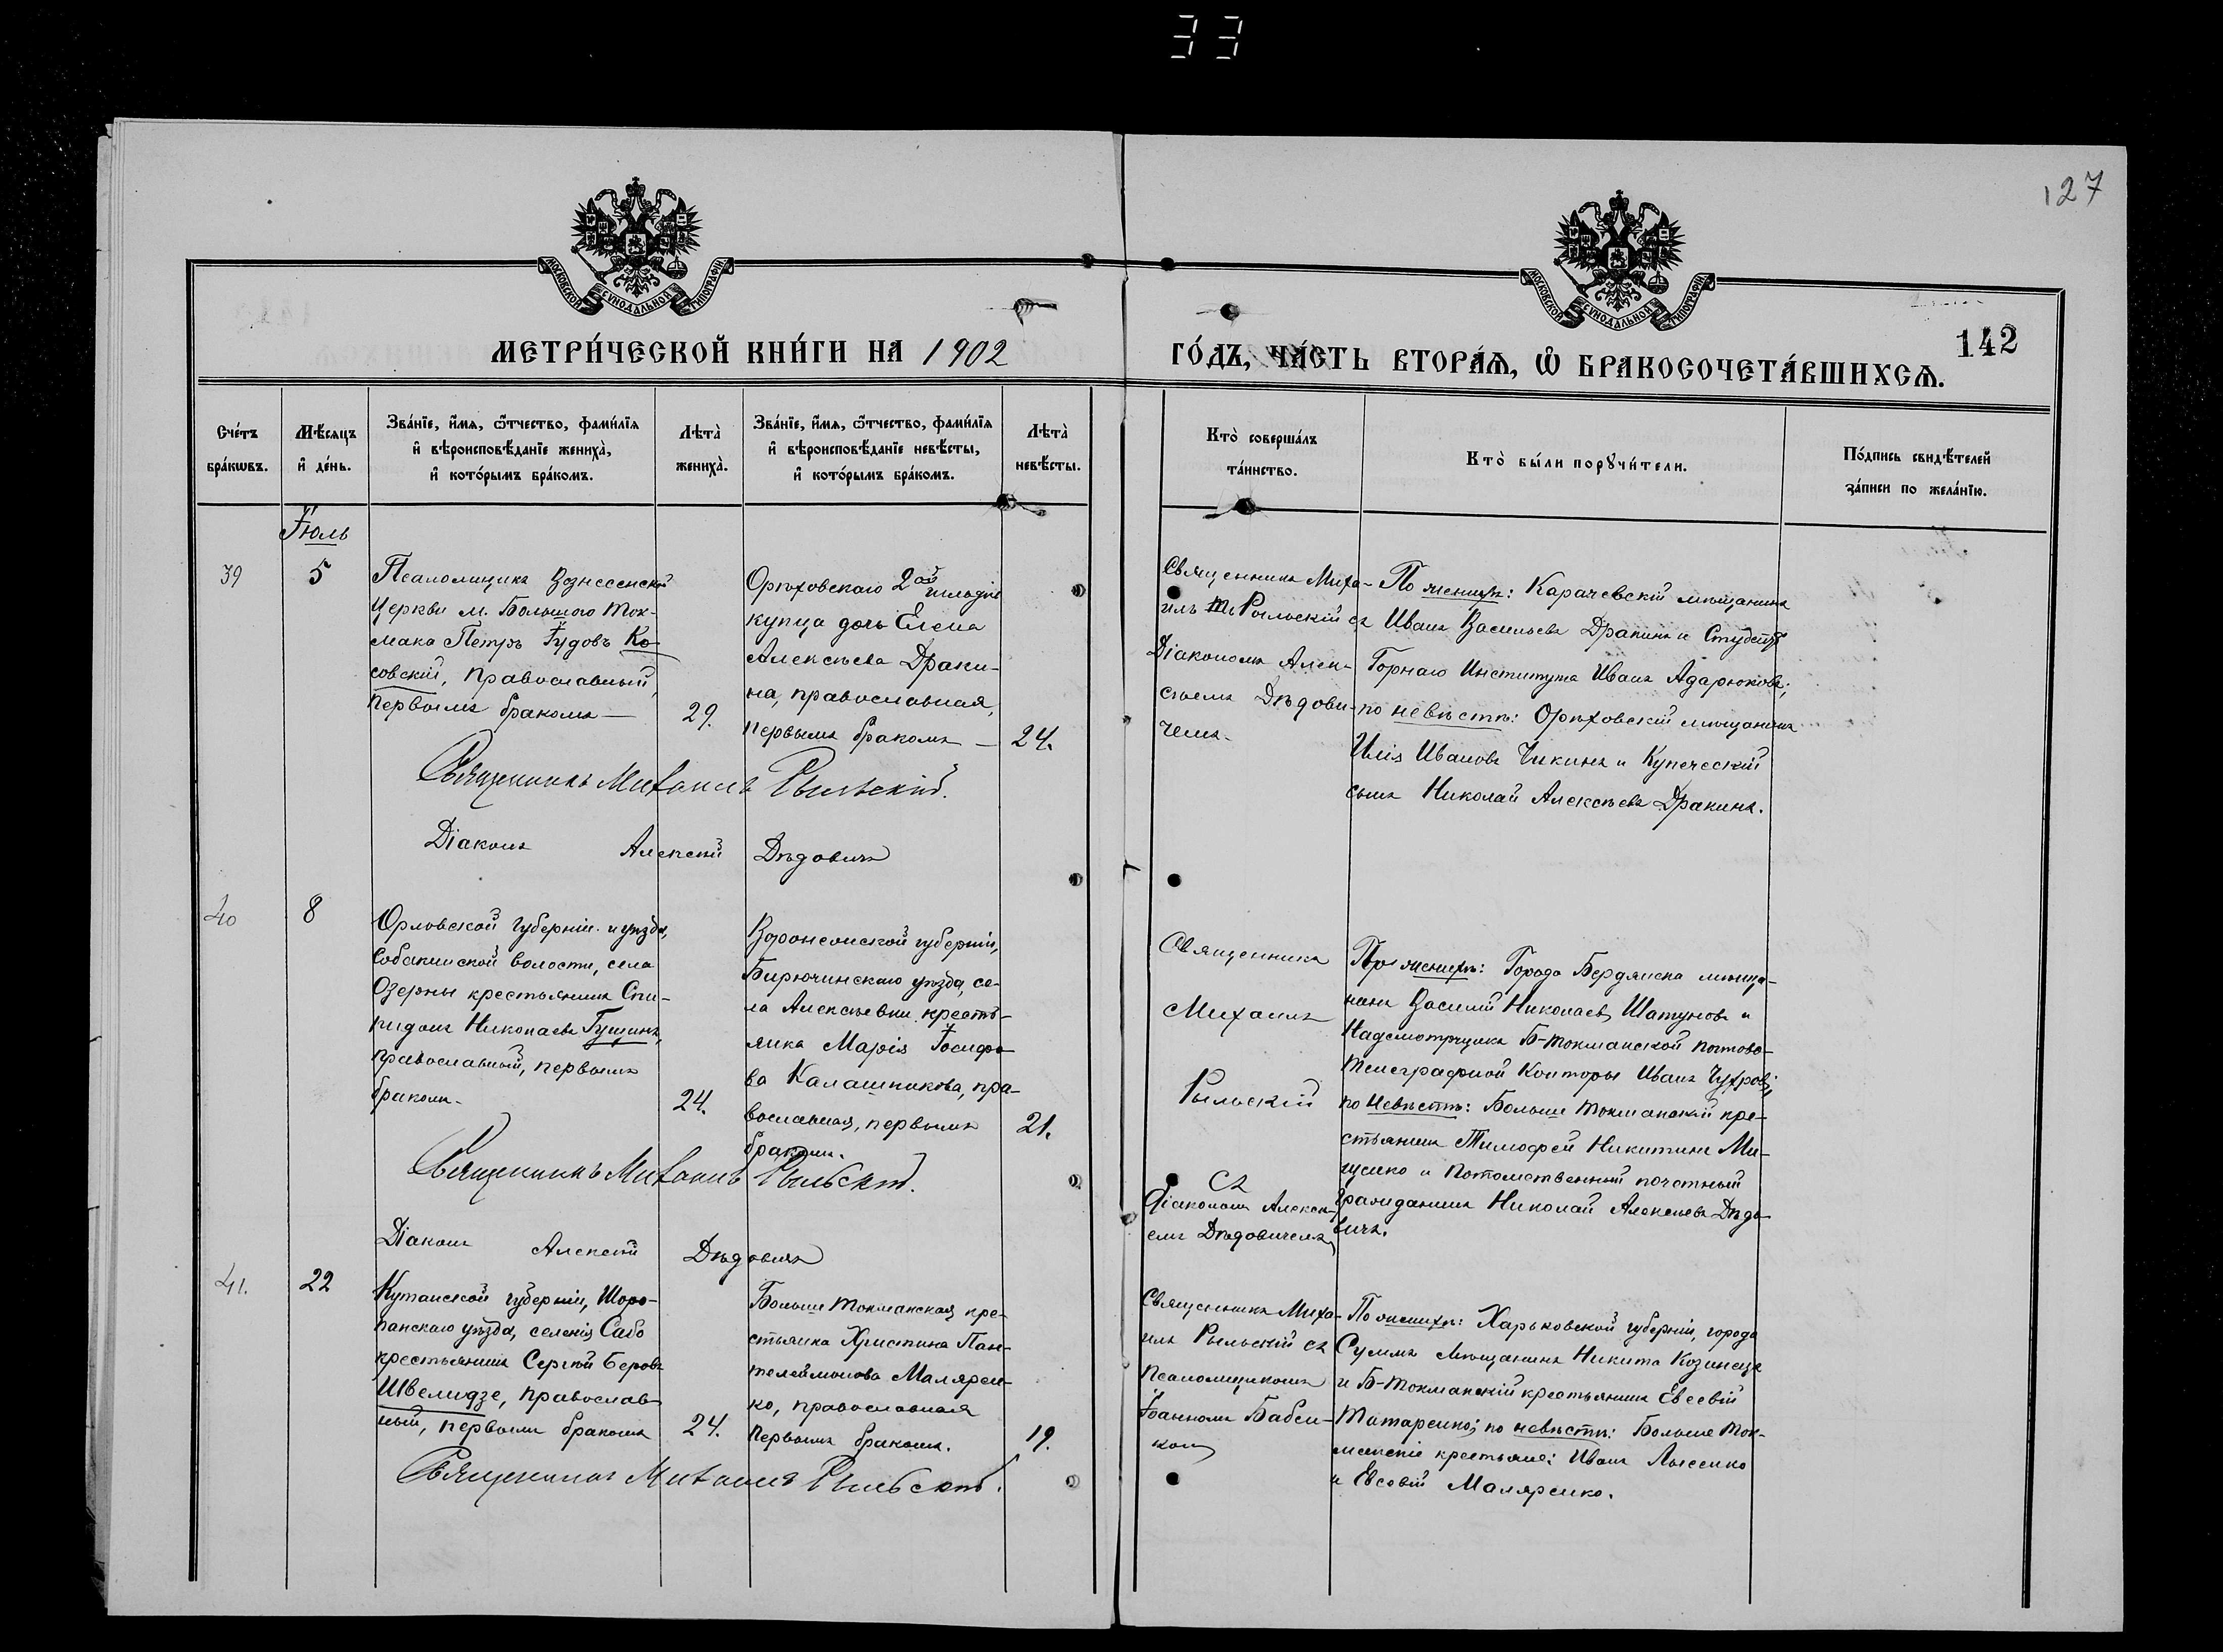 33
127
МОСКОВСКОЙ СѴНОДАЛЬНОЙ ТИПОГРАФІИ
МОСКОВСКОЙ СѴНОДАЛЬНОЙ ТИПОГРАФІИ
142
МЕТРИ́ЧЕСКОЙ КНИ́ГИ НА 1902
ГО́ДЪ, ЧА́СТЬ ВТОРА́Ѧ, Ѽ БРАКОСОЧЕТА́ВШИХСѦ.
Сче́тъ
бра́кѡвъ.
Мѣ́сяцъ
и҆ де́нь.
Зва́нїе, и҆́мя, ѻ҆́тчество, фами́лїя
и҆ вѣроисповѣ́данїе жениха̀,
и҆ кото́рымъ бра́комъ.
Лѣта̀
жениха̀.
Зва́нїе, и҆́мя, ѻ҆́тчество, фами́лїя
и҆ вѣроисповѣ́данїе невѣ́сты,
и҆ кото́рымъ бра́комъ.
Лѣта̀
невѣ́сты.
Кто̀ соверша́лъ
та́инство.
Кто̀ бы́ли порꙋчи́тели.
По́дпись свидѣ́телей
за́писи по жела́нїю.
Іюль
39
5
Псаломщикъ Вознесенской
Церкви м. Большого Ток-
мака Петръ Іудовъ Ко-
совскій, православный,
первымъ бракомъ —
29.
Орѣховскаго 2ой гильдіи
купца дочь Елена
Алексѣева Драки-
на, православная,
первымъ бракомъ —
24.
Священникъ Миха-
илъ Рыльскій съ
Діакономъ Алек-
сѣемъ Дѣдови-
чемъ.
По женихѣ: Карачевскій мѣщанинъ
Иванъ Васильевъ Дракинъ и Студентъ
Горнаго Института Иванъ Адарюковъ;
по невѣстѣ: Орѣховскій мѣщанинъ
Илія Ивановъ Чикинъ и Купеческій
сынъ Николай Алексѣевъ Дракинъ.
Священникъ Михаилъ Рыльскій.
Діаконъ Алексій Дѣдовичъ
40
8
Орловской губерніи и уѣзда,
Собакинской волости, села
Озерны крестьянинъ Спи-
ридонъ Николаевъ Гущинъ,
православный, первымъ
бракомъ.
24.
Воронежской губерніи,
Бирюченскаго уѣзда, се-
ла Алексѣевки крестья-
янка Марія Іосифо-
ва Калашникова, пра-
вославная, первымъ
бракомъ.
21.
Священникъ
Михаилъ
Рыльскій
съ
Діакономъ Алексѣ-
емъ Дѣдовичемъ
По женихѣ: Города Бердянска мѣща-
нинъ Василій Николаевъ Шатуновъ и
Надсмотрщикъ Б-Токмакской почтово-
телеграфной Конторы Иванъ Чухровъ;
по невѣстѣ: Больше Токмакскій кре-
стьянинъ Тимофей Никитинъ Ми-
щенко и потомственный почетный
гражданинъ Николай Алексѣевъ Дѣдо-
вичъ.
Священникъ Михаилъ Рыльскій.
Діаконъ Алексій Дѣдовичъ
41.
22
Кутаисской губерніи, Шоро-
панскаго уѣзда, селенія Сабо
крестьянинъ Сергѣй Беровъ
Швелидзе, православ-
ный, первымъ бракомъ
24.
Больше Токмакская кре-
стьянка Христина Пан-
телеймонова Малярен-
ко, православная
первымъ бракомъ.
19.
Священникъ Миха-
илъ Рыльскій съ
псаломщикомъ
Іоанномъ Бабен-
комъ
По женихѣ: Харьковской губерніи, города
Сумъ мѣщанинъ Никита Козинецъ
и Б-Токмакскій крестьянинъ Евсевій
Татаренко; по невѣстѣ: Больше Ток-
макскіе крестьяне: Иванъ Лысенко
и Евсевій Маляренко.
Священникъ Михаилъ Рыльскій.